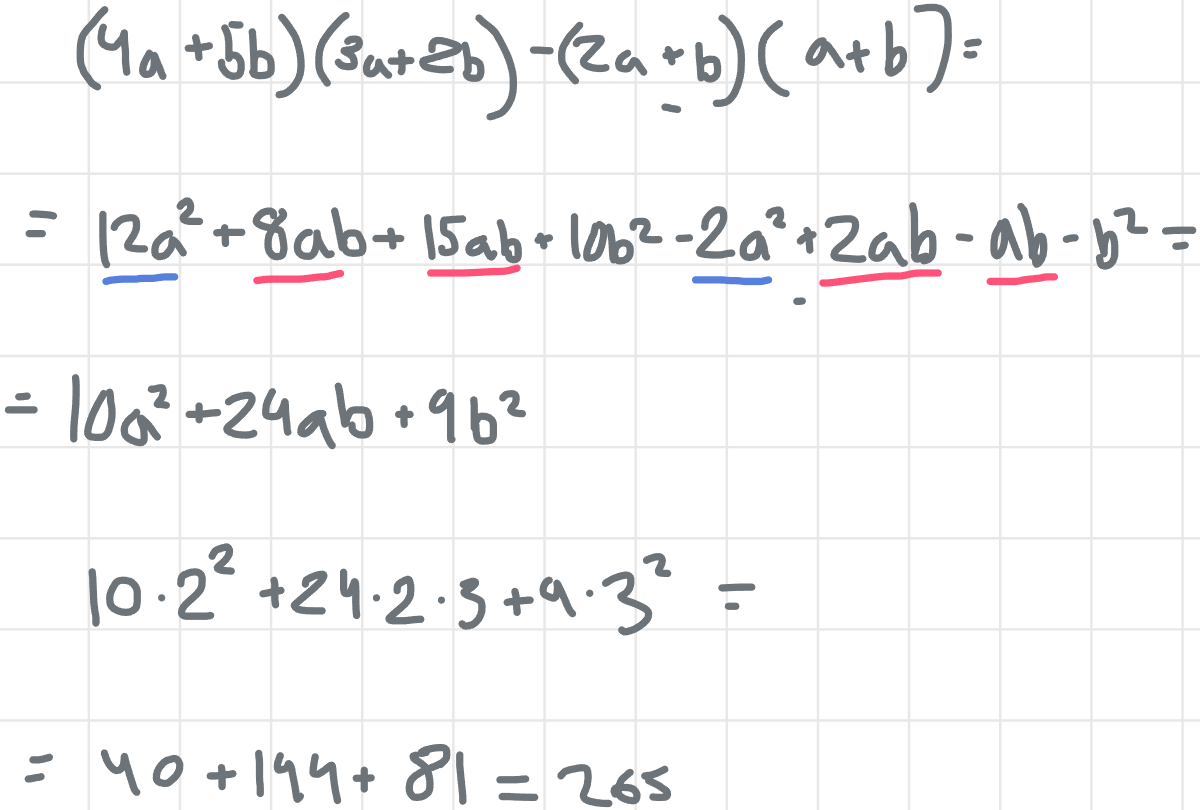 (4a+5b)(3a+2b)-(2a+b)(a+b)=
=12a²+8ab+15ab+10b²-2a²+2ab-ab-b²=
=10a²+24ab+9b²
10·2²+24·2·3+9·3²=
=40+144+81=265